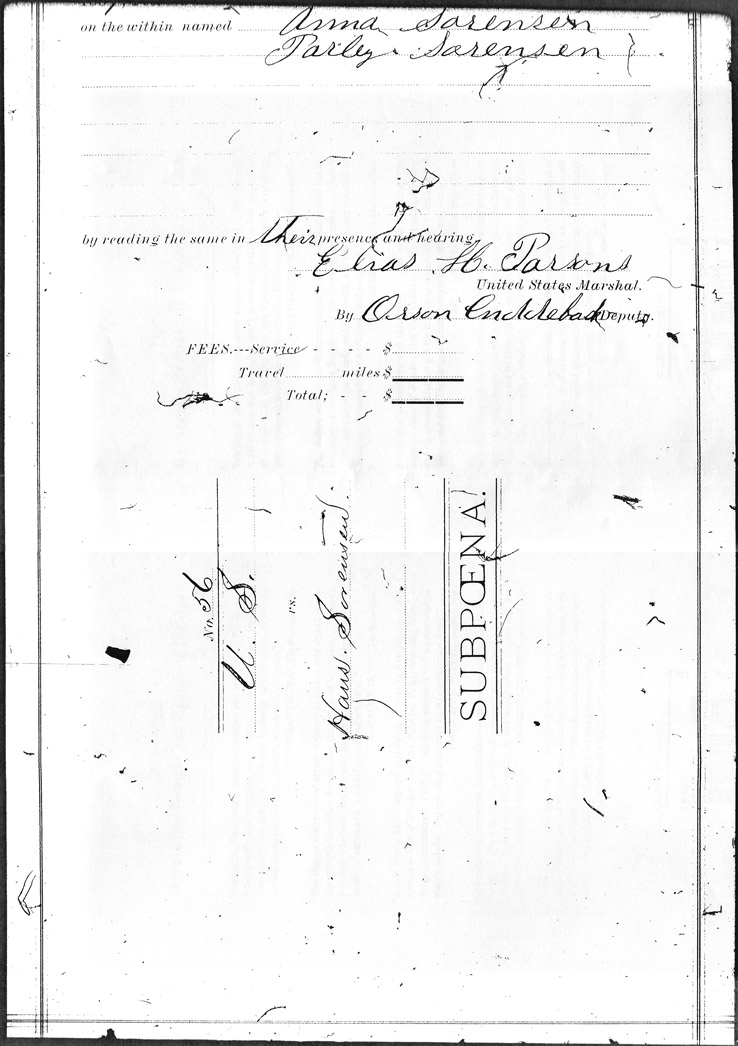 on the within named Anna Sorensen
Parley Sorensen
by reading the same in their presence and hearing
Elias H. Parsons
United States Marshal.
By Orson Deputy.
FEES.---Service - - - - $
Travel miles $
Total; - - $
No. 56
U. S.
vs.
Hans. Sorensen.
SUBPŒNA.